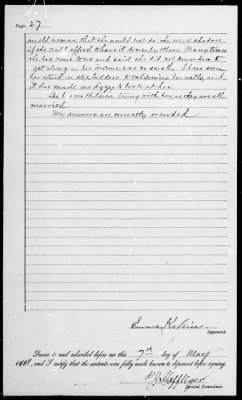 Page 27
an old woman that she would not do she would
if she can't afford to have it done by others. Many times
she has come to me and said she did not know how to
get along as her income was so small. I have seen
her stand on step ladders to calcimine her walls, and
it has made me dizzy to look at her.
She has no children living with her, as they are all
married.
My answers are correctly recorded.
Deponent.
Sworn to and subscribed before me this 7th day of May
188 , and I certify that the contents were fully made known to deponent before signing.
Special Examiner.